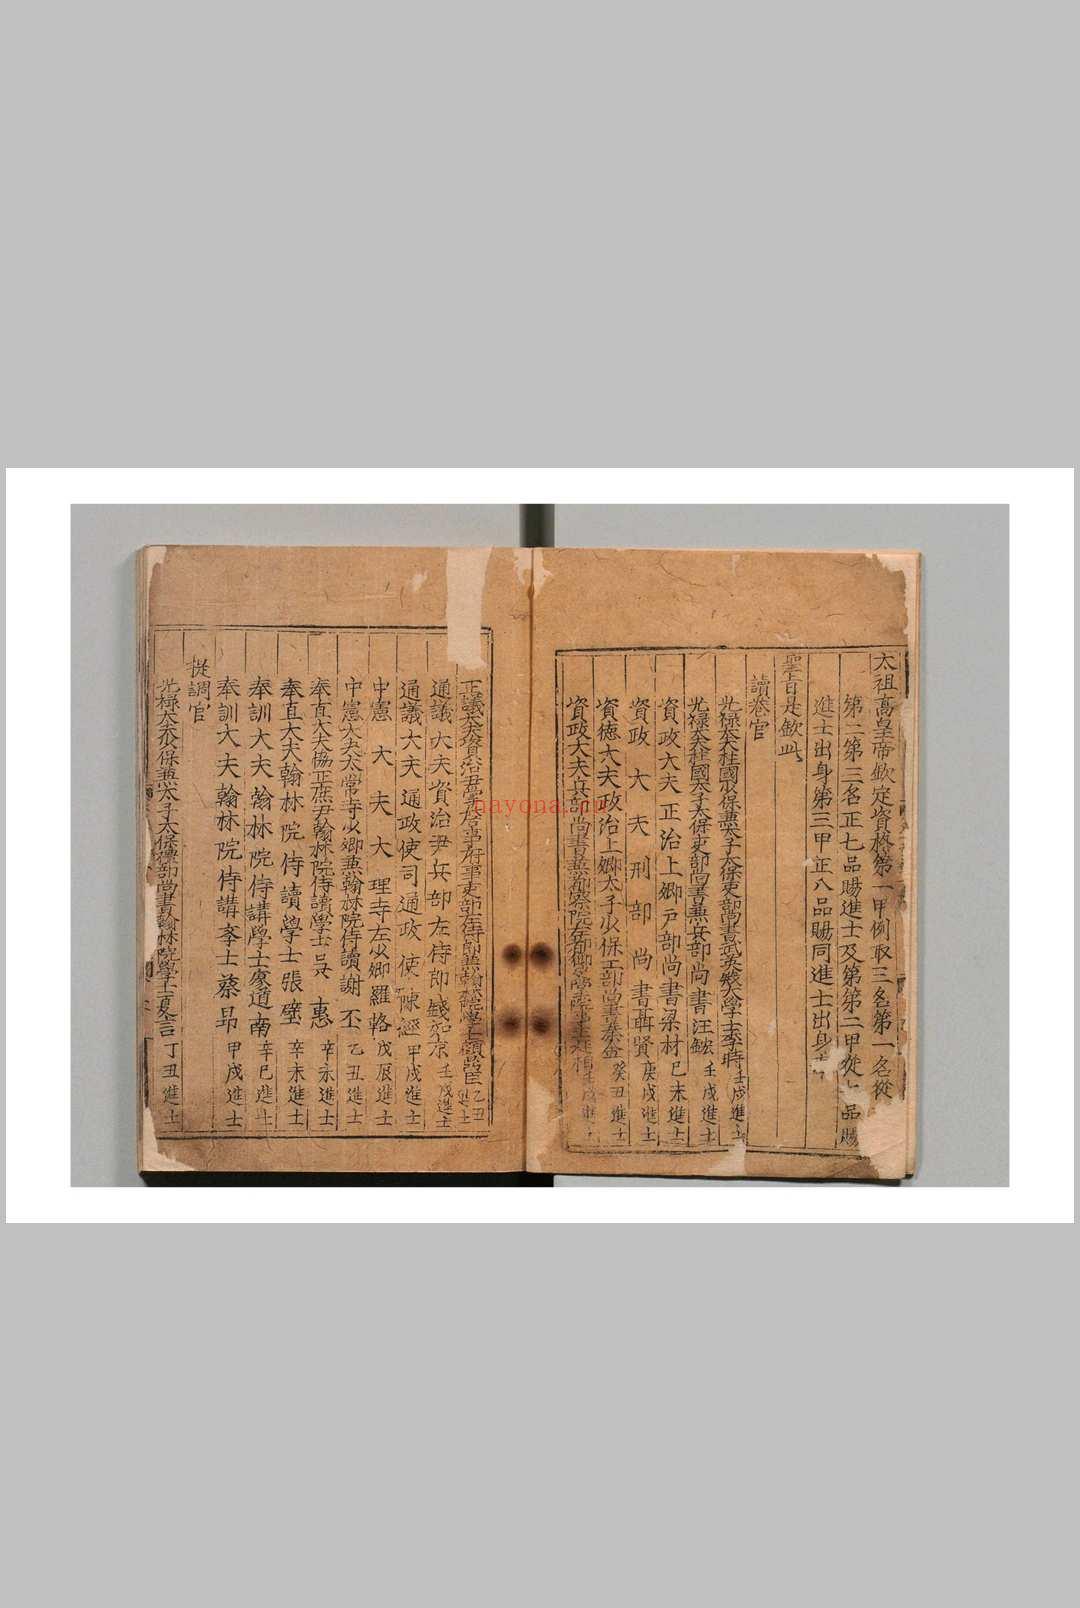 太祖高皇帝欽定資格第一甲例取三名第一名從
第二第三名正七品賜進士及第第二甲從七品賜
進士出身第三甲正八品賜同進士出身
聖旨是欽此
讀卷官
光祿大夫柱國少保兼太子太保吏部尚書武英殿大學士李時 壬戌進士
光祿大夫柱國太子太保吏部尚書兼兵部尚書汪鋐 壬戌進士
資政大夫正治上卿戶部尚書梁材 己未進士
資政大夫刑部尚書聶賢 庚戌進士
資德大夫政治上卿太子少保工部尚書秦金 癸丑進士
資政大夫兵部尚書兼都察院左都御史 進士
正議大夫資治尹掌詹事府事吏部左侍郎兼翰林院學士顧鼎臣 乙丑進士
通議大夫資治尹兵部左侍郎錢如京 壬戌進士
通議大夫通政使司通政使陳經 甲戌進士
中憲大夫大理寺左少卿羅輅 戊辰進士
中憲大夫太常寺少卿兼翰林院侍讀謝丕 乙丑進士
奉直大夫協正庶尹翰林院侍讀學士吳惠 辛未進士
奉直大夫翰林院侍讀學士張璧 辛未進士
奉訓大夫翰林院侍講學士廖道南 辛巳進士
奉訓大夫翰林院侍講學士蔡昂 甲戌進士
從調官
光祿大夫少保兼太子太保禮部尚書翰林院學士夏言 丁丑進士
nayona.cn